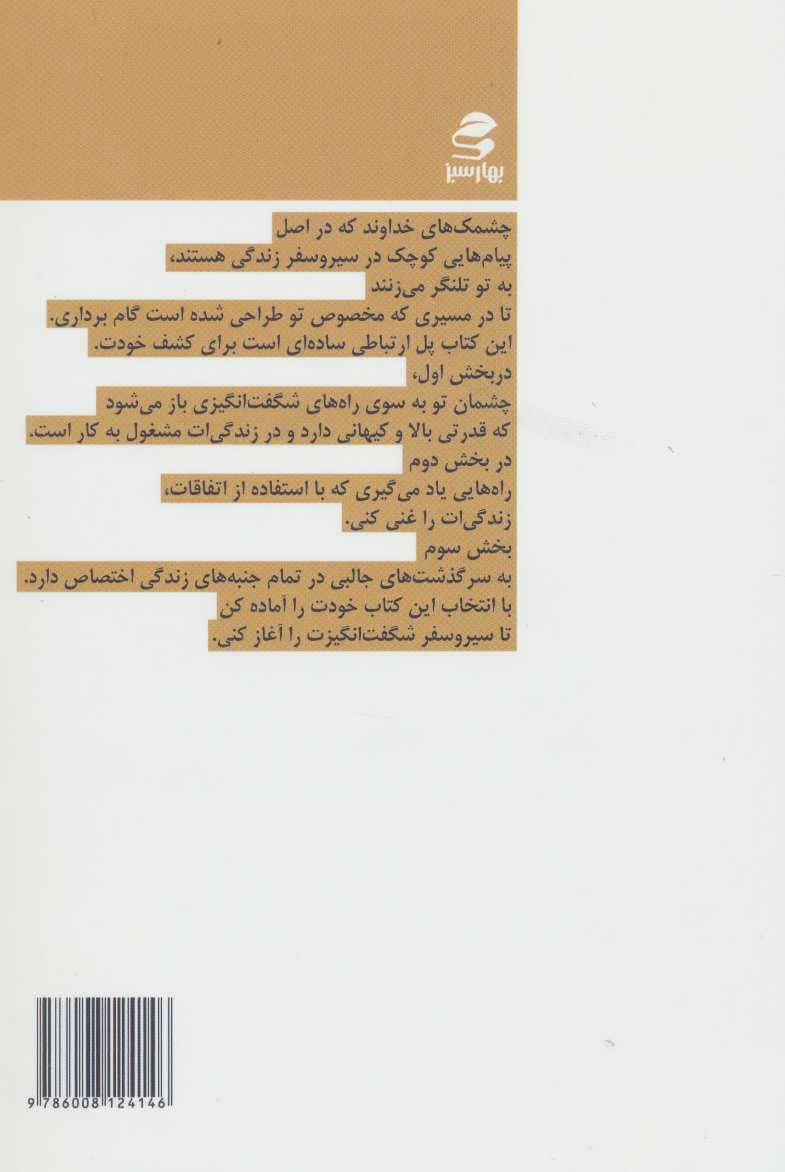 بهار سبز
چشمک‌های خداوند که در اصل
پیام‌هایی کوچک در سیروسفر زندگی هستند،
به تو تلنگر می‌زنند
تا در مسیری که مخصوص تو طراحی شده است گام برداری.
این کتاب پل ارتباطی ساده‌ای است برای کشف خودت.
دربخش اول،
چشمان تو به سوی راه‌های شگفت‌انگیزی باز می‌شود
که قدرتی بالا و کیهانی دارد و در زندگی‌ات مشغول به کار است.
در بخش دوم
راه‌هایی یاد می‌گیری که با استفاده از اتفاقات،
زندگی‌ات را غنی کنی.
بخش سوم
به سرگذشت‌های جالبی در تمام جنبه‌های زندگی اختصاص دارد.
با انتخاب این کتاب خودت را آماده کن
تا سیروسفر شگفت‌انگیزت را آغاز کنی.
9 786008 124146